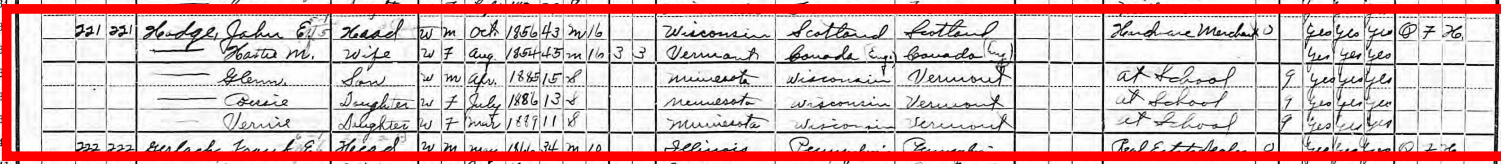 221 221 Hodge, John E. Head W M Oct 1856 43 M 16 Wisconsin Scotland Scotland Hardware Merchant 0 Yes Yes Yes O F H
— M. Wife W F Aug. 1854 45 M 16 3 3 Vermont Canada (Eng.) Canada (Eng) Yes Yes Yes
— Glenn Son W M Apr. 1885 15 S Minnesota Wisconsin Vermont at School 9 Yes Yes Yes
— Daughter W F July 1886 13 S Minnesota Wisconsin Vermont at School 9 Yes Yes Yes
— Daughter W F Mar 1889 11 S Minnesota Wisconsin Vermont at School 9 Yes Yes Yes
222 222 Head W M 34 M 10 Illinois Real Estate Dealer 0 Yes Yes Yes O F H